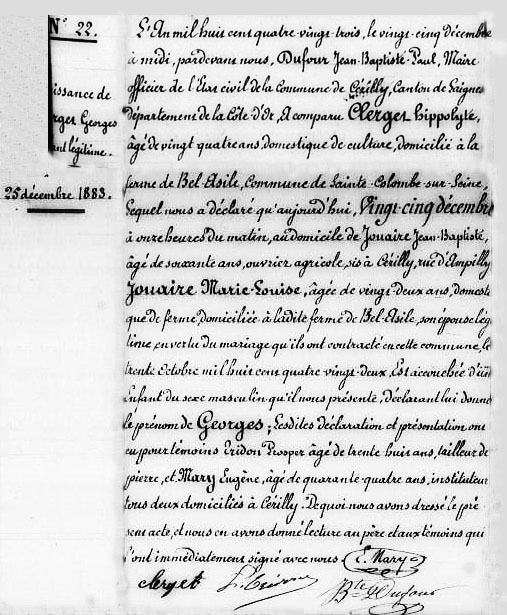 N° 22.
issance de
rget Georges
ant légitime.
25 décembre 1883.
L'An mil huit cent quatre vingt-trois, le vingt-cinq décembre
à midi, pardevant nous, Dufour Jean-Baptiste-Paul, Maire
officier de l'Etat civil de la Commune de Cérilly, Canton de Laignes
département de la Côte-d'Or, A comparu Clerget Hippolyte,
âgé de vingt quatre ans, domestique de culture, domicilié à la
ferme de Bel-Asile, Commune de Sainte-Colombe-sur-Seine,
Lequel nous a déclaré qu'aujourd'hui, Vingt-cinq décembre
à onze heures du matin, au domicile de Jouaire Jean-Baptiste,
âgé de soixante ans, ouvrier agricole, sis à Cérilly, rue d'Ampilly
Jouaire Marie-Louise, âgée de vingt-deux ans, domesti
que de ferme, domiciliée à ladite ferme de Bel-Asile, son épouse lég
time, en vertu du mariage qu'ils ont contracté en cette commune, le
trente Octobre mil huit cent quatre vingt-deux, Est accouchée d'un
Enfant du sexe masculin qu'il nous présente, déclarant lui donne
le prénom de Georges; Lesdites déclaration et présentation ont
eu pour témoins Tridon Prosper âgé de trente huit ans, tailleur de
pierre, et Mary Eugène, âgé de quarante-quatre ans, instituteur
tous deux domiciliés à Cérilly. De quoi nous avons dressé le pré
sent acte, et nous en avons donné lecture au père et aux témoins qui
l'ont immédiatement signé avec nous E. Mary
clerget
Bte Dufour